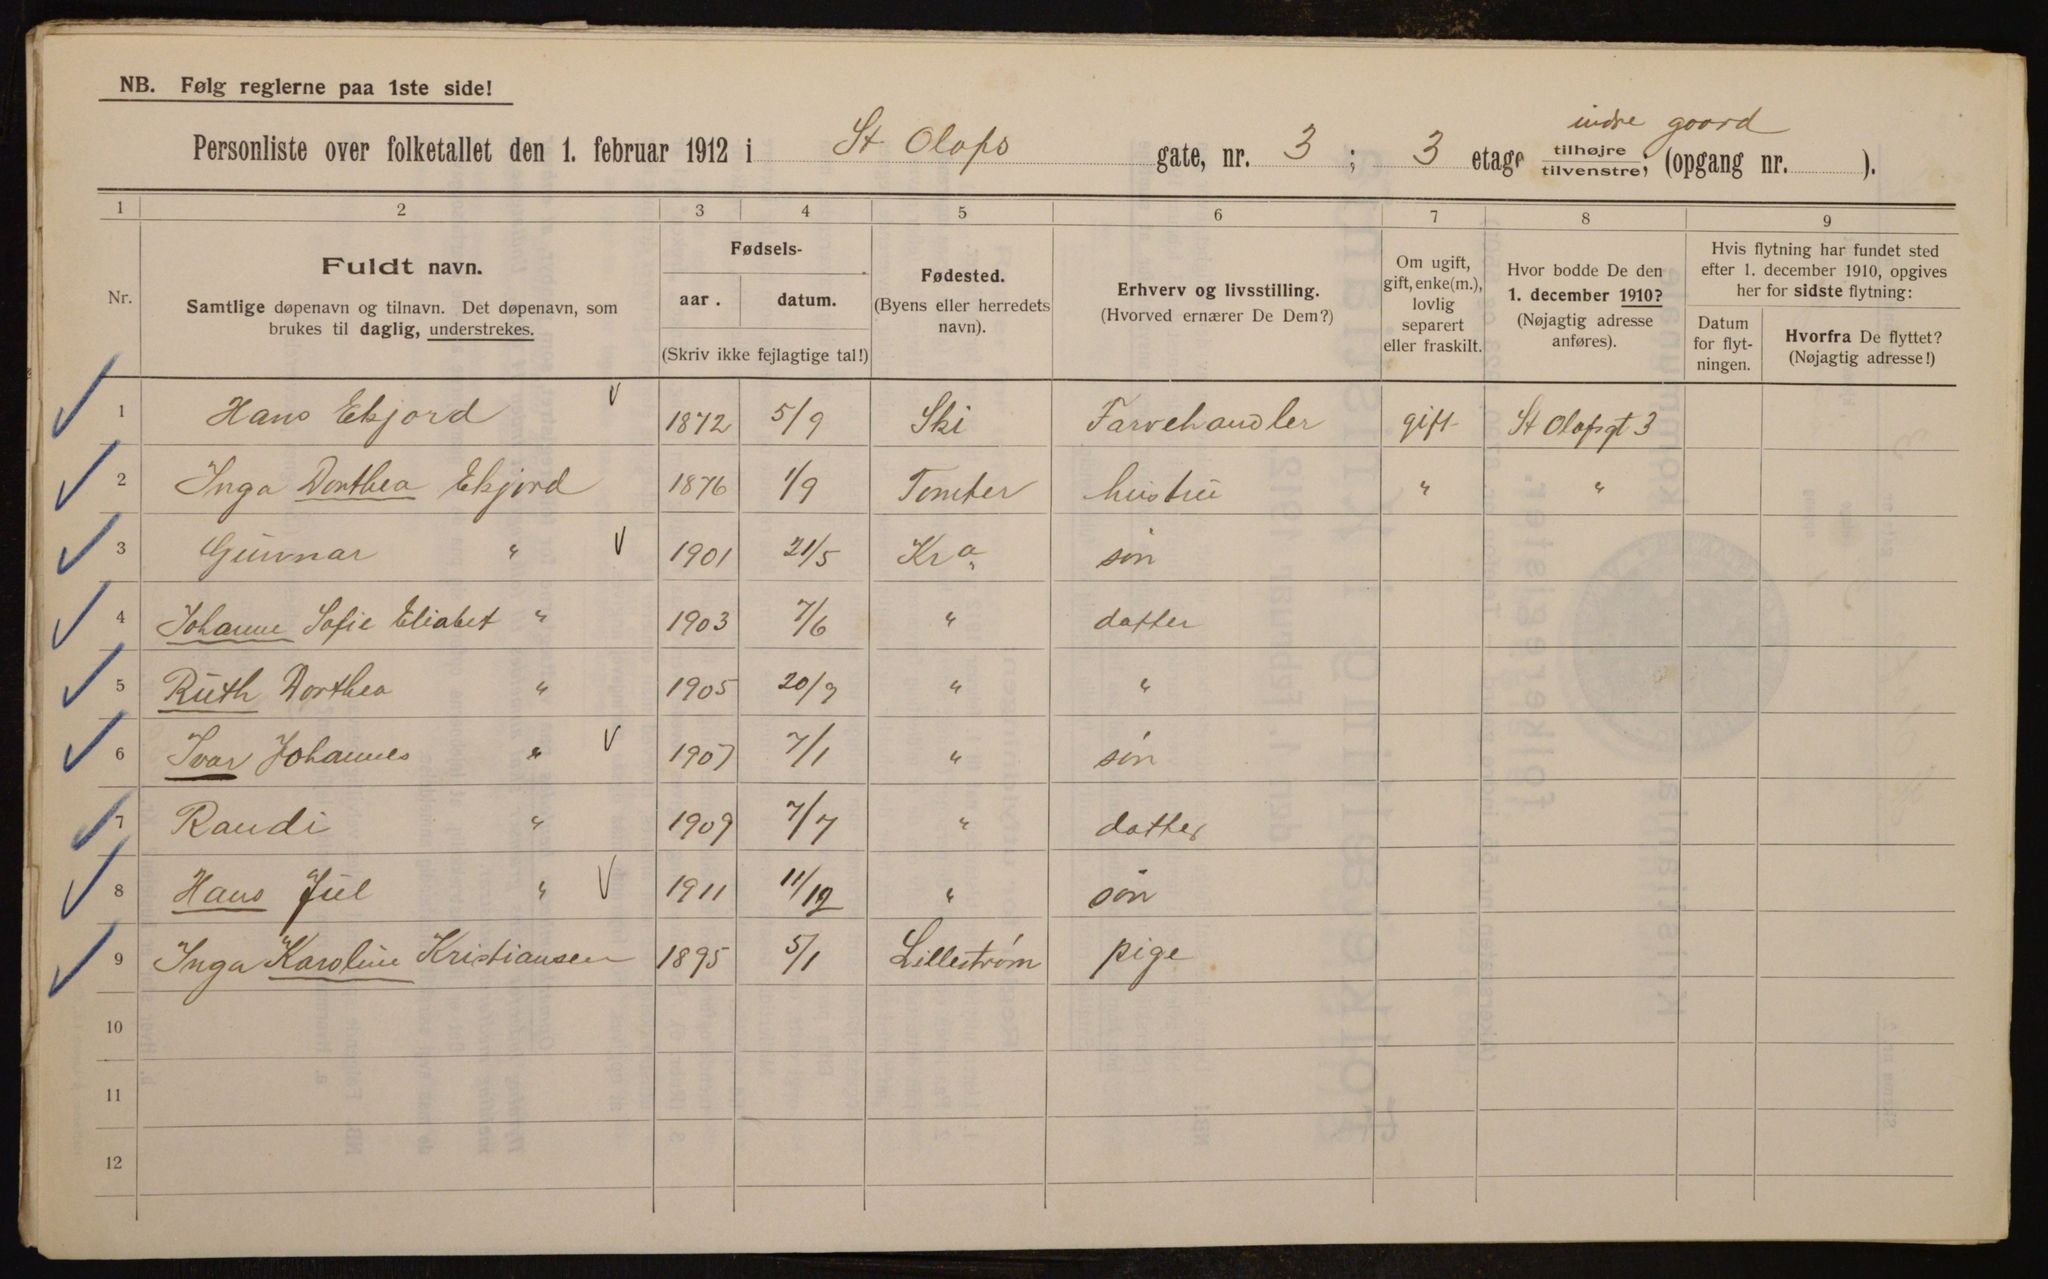 NB. Følg reglerne paa 1ste side!
indre goord
Personliste over folketallet den 1. februar 1912 i St Olafs gate, nr. 3 ; 3 etage tilhøjre/tilvenstre; (opgang nr. ).
1 2 3 4 5 6 7 8 9
Nr. Fuldt navn. Samtlige døpenavn og tilnavn. Det døpenavn, som brukes til daglig, understrekes.
Fødsels- aar. datum. (Skriv ikke fejlagtige tal!)
Fødested. (Byens eller herredets navn).
Erhverv og livsstilling. (Hvorved ernærer De Dem?)
Om ugift, gift, enke(m.), lovlig separert eller fraskilt.
Hvor bodde De den 1. december 1910? (Nøjagtig adresse anføres).
Hvis flytning har fundet sted efter 1. december 1910, opgives her for sidste flytning:
Datum for flyt-ningen.
Hvorfra De flyttet? (Nøjagtig adresse!)
1 Hans Ekjord 1872 5/9 Ski Farvehandler gift St Olafsgt 3
2 Inga Dorthea Ekjord 1876 1/9 Tomter hustru " "
3 Gunnar " 1901 21/5 Kra. søn
4 Johanne Sofie Eliabet " 1903 7/6 " datter
5 Ruth Dorthea " 1905 20/9 " "
6 Ivar Johannes " 1907 7/1 " søn
7 Randi " 1909 7/7 " datter
8 Hans Jul " 1911 11/12 " søn
9 Inga Karoline Kristiansen 1895 5/1 Lillestrøm pige
10
11
12